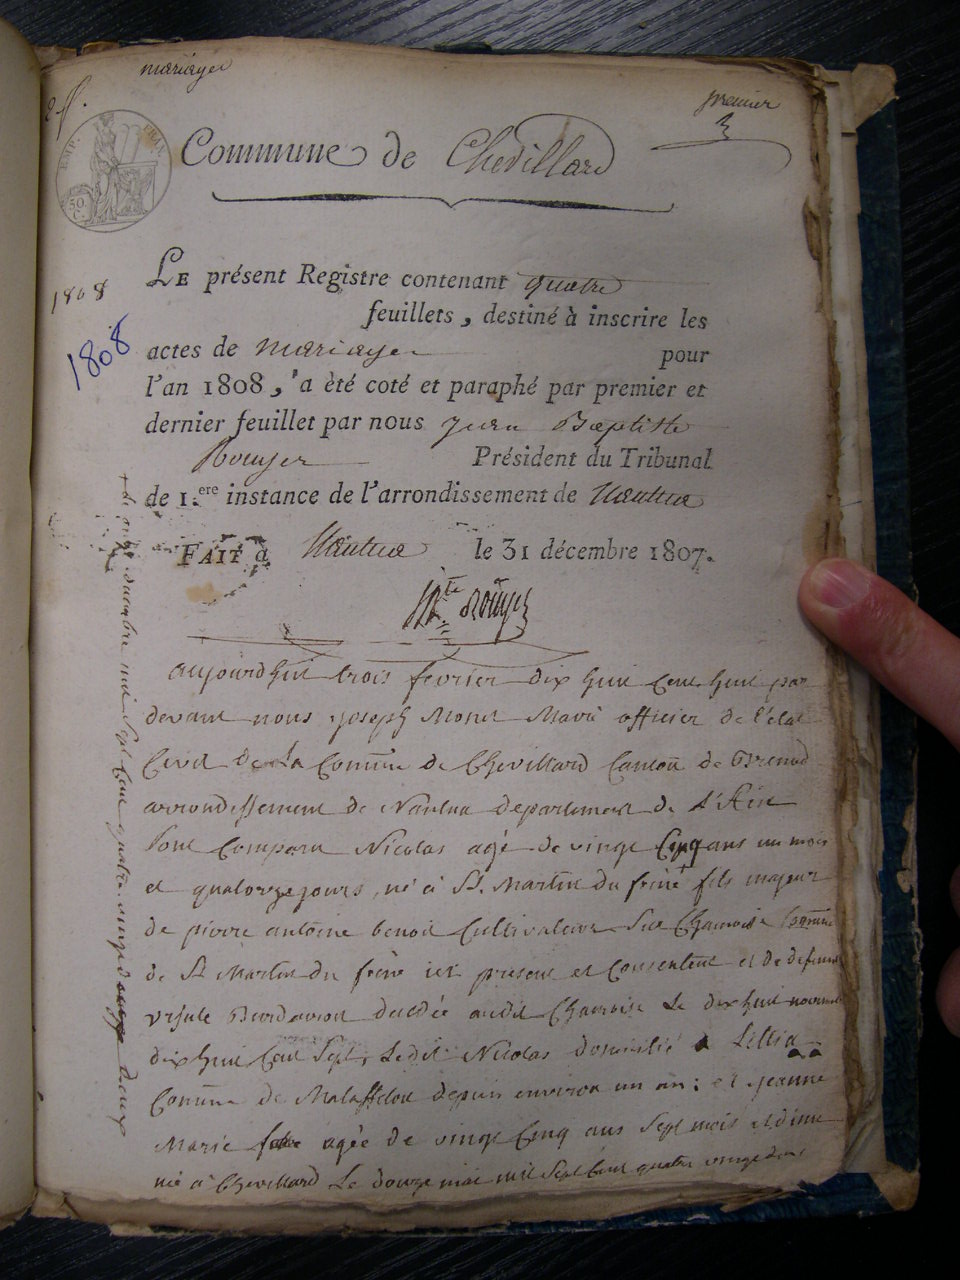 mariages
premier
2 f.
EMP. FRAN.
50 C.
Commune de Chevillard
1808
1808
LE présent Registre contenant quatre
feuillets, destiné à inscrire les
actes de mariages pour
l'an 1808, a èté coté et paraphé par premier et
dernier feuillet par nous Jean Baptiste
Rouyer Président du Tribunal
de 1.ere instance de l'arrondissement de Nantua
FAIT à Nantua le 31 décembre 1807.
Bte Rouyer
aujourdhui trois fevrier dix huit Cent huit par
devant nous joseph Monet Maire officier de l'etat
Civil de La Comune de Chevillard Canton de Brenod
arrondissement de Nantua departement de L'Ain
sont Comparu Nicolas agé de vingt Cinq ans un mois
et quatorze jours, né à St. Martin du frene + fils majeur
de pierre antoine benoit Cultivateur Chamoise
de St Martin du frêne ici present et Consentent et de defunte
ursule décédée audit Chamoise Le dix huit novembre
dix huit Cent Sept, Ledit Nicolas domicilié à
Comune de depuis environ un an ; et jeanne
Marie agée de vingt Cinq ans Sept mois et
né à Chevillard Le douze mai mil Sept Cent quatre vingt deux
+ Le onze decembre mil Sept Cent quatre vingt deux